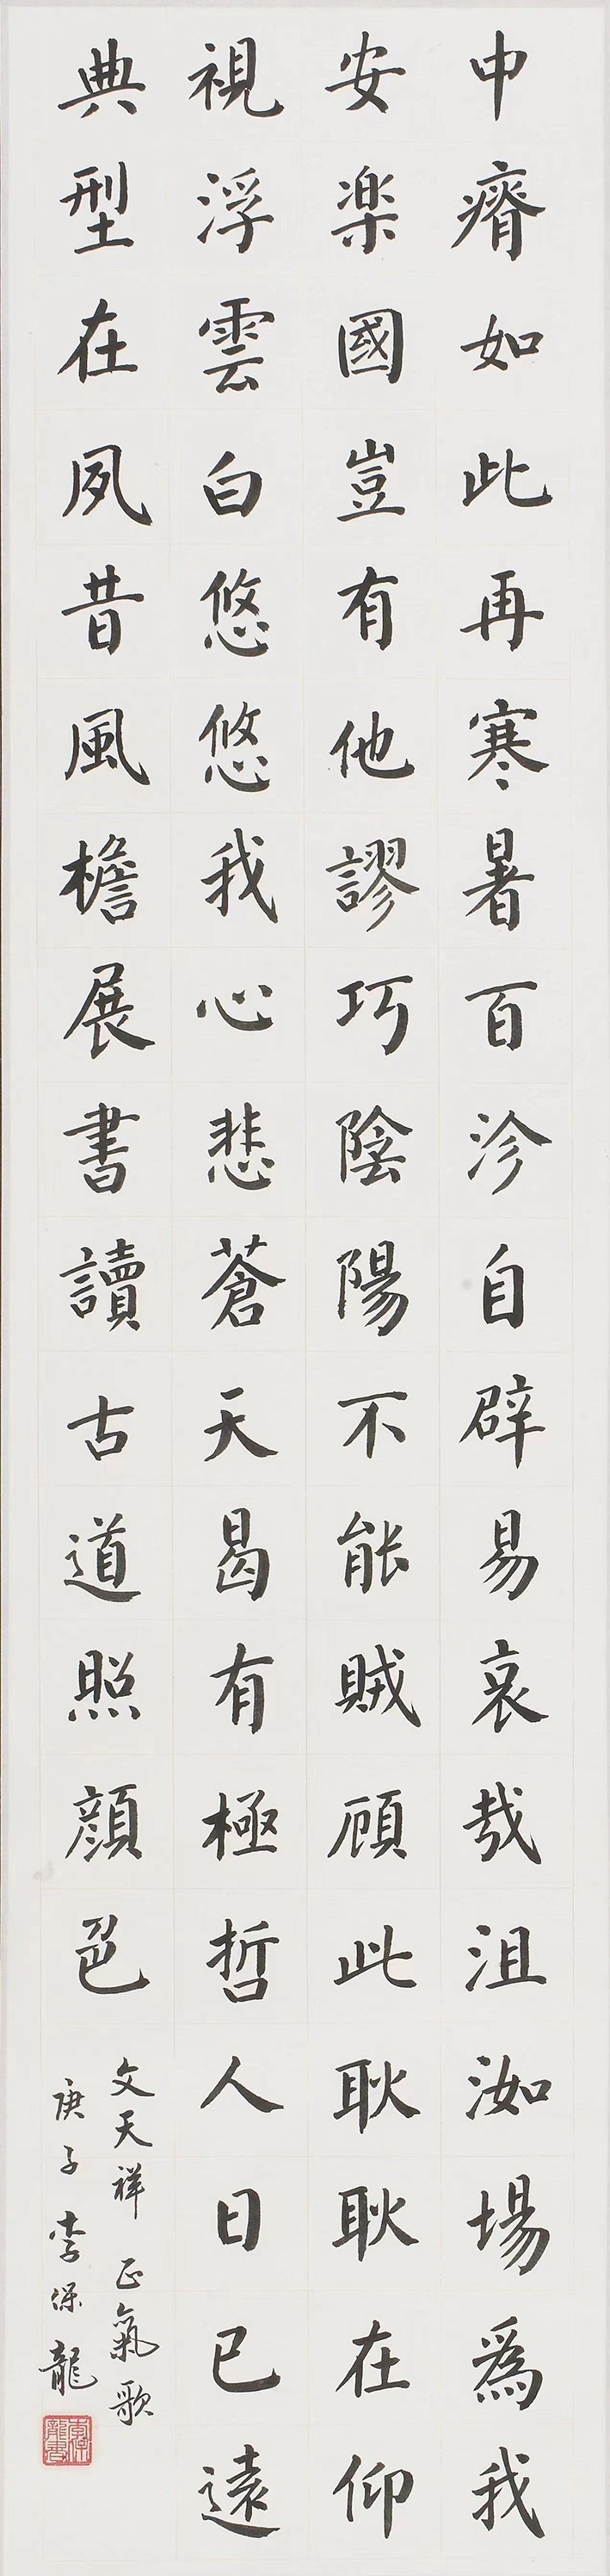 中瘠如此再寒暑百沴自辟易哀哉沮洳場爲我
安楽國豈有他謬巧陰陽不能賊顧此耿耿在仰
視浮雲白悠悠我心悲蒼天曷有極哲人日已遠
典型在夙昔風檐展書讀古道照顔色
文天祥 正氣歌
庚子 李保龍
李保龍書